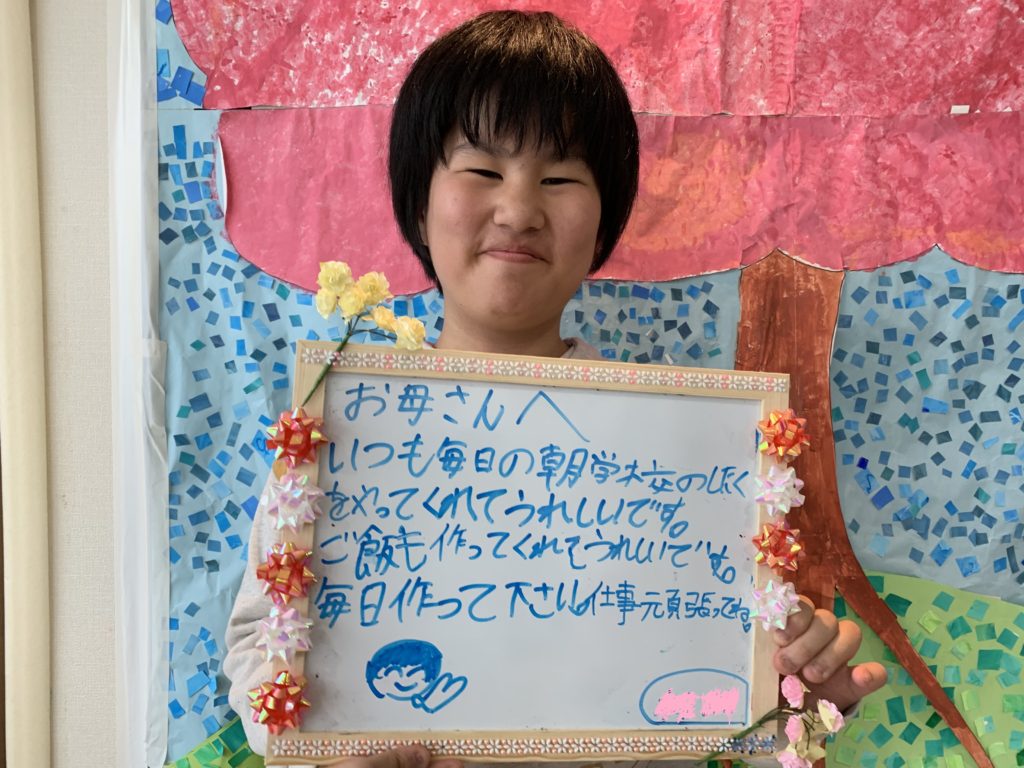 お母さんへ
いつも毎日の朝学校のしたく
をやってくれてうれしいです。
ご飯も作ってくれてうれいです。
毎日作って下さい。仕事頑張ってね。